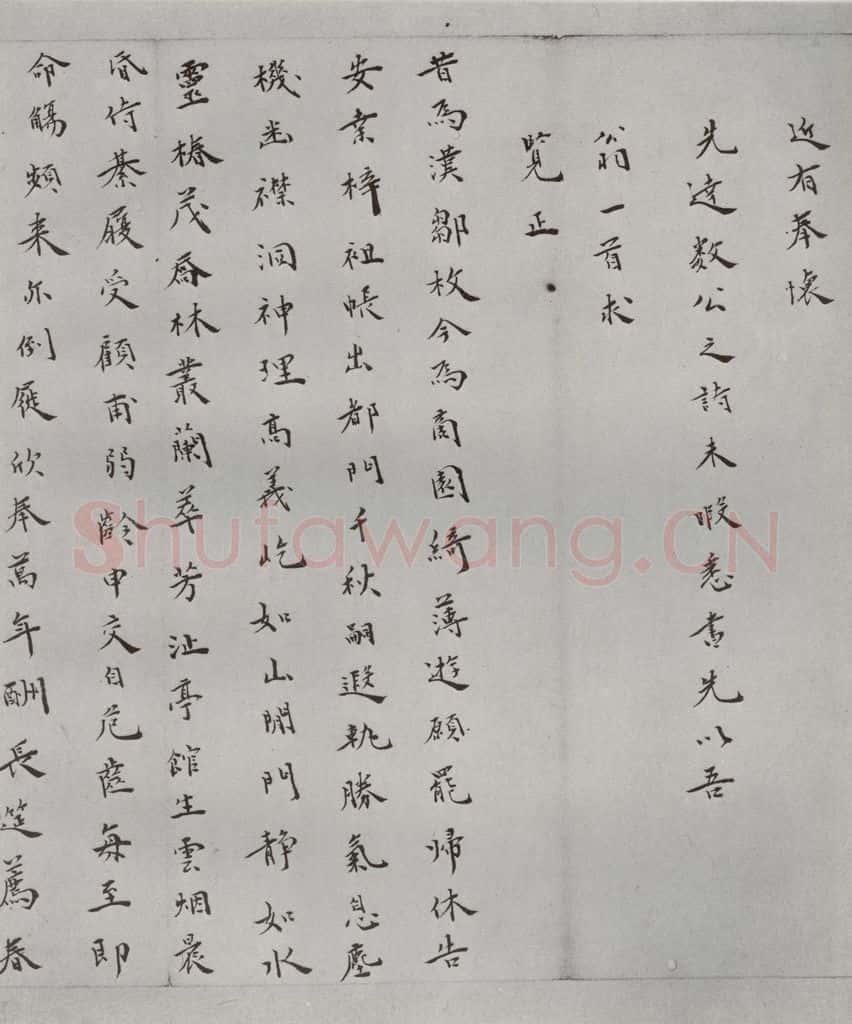 近有奉懷
先達数公之詩未暇悉書先以吾
翁一首求
覽正
昔為漢鄒枚今為商園綺薄遊願罷歸休告
安桒梓祖帳出都門千秋嗣遐軌勝氣息塵
機幽襟洞神理高義屹如山閒門静如水
靈椿茂喬林叢蘭萃芳沚亭館生雲烟晨
昏侍綦履受顧甫弱齡申交自茝每至即
命觴頻来亦倒屣欣奉萬年酬長筵薦春
Shufawang.CN